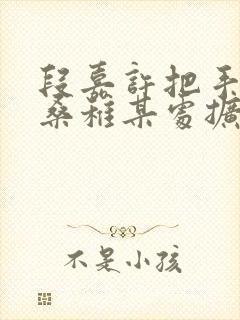 段嘉許把手
桑稚某處擴
不是小孩